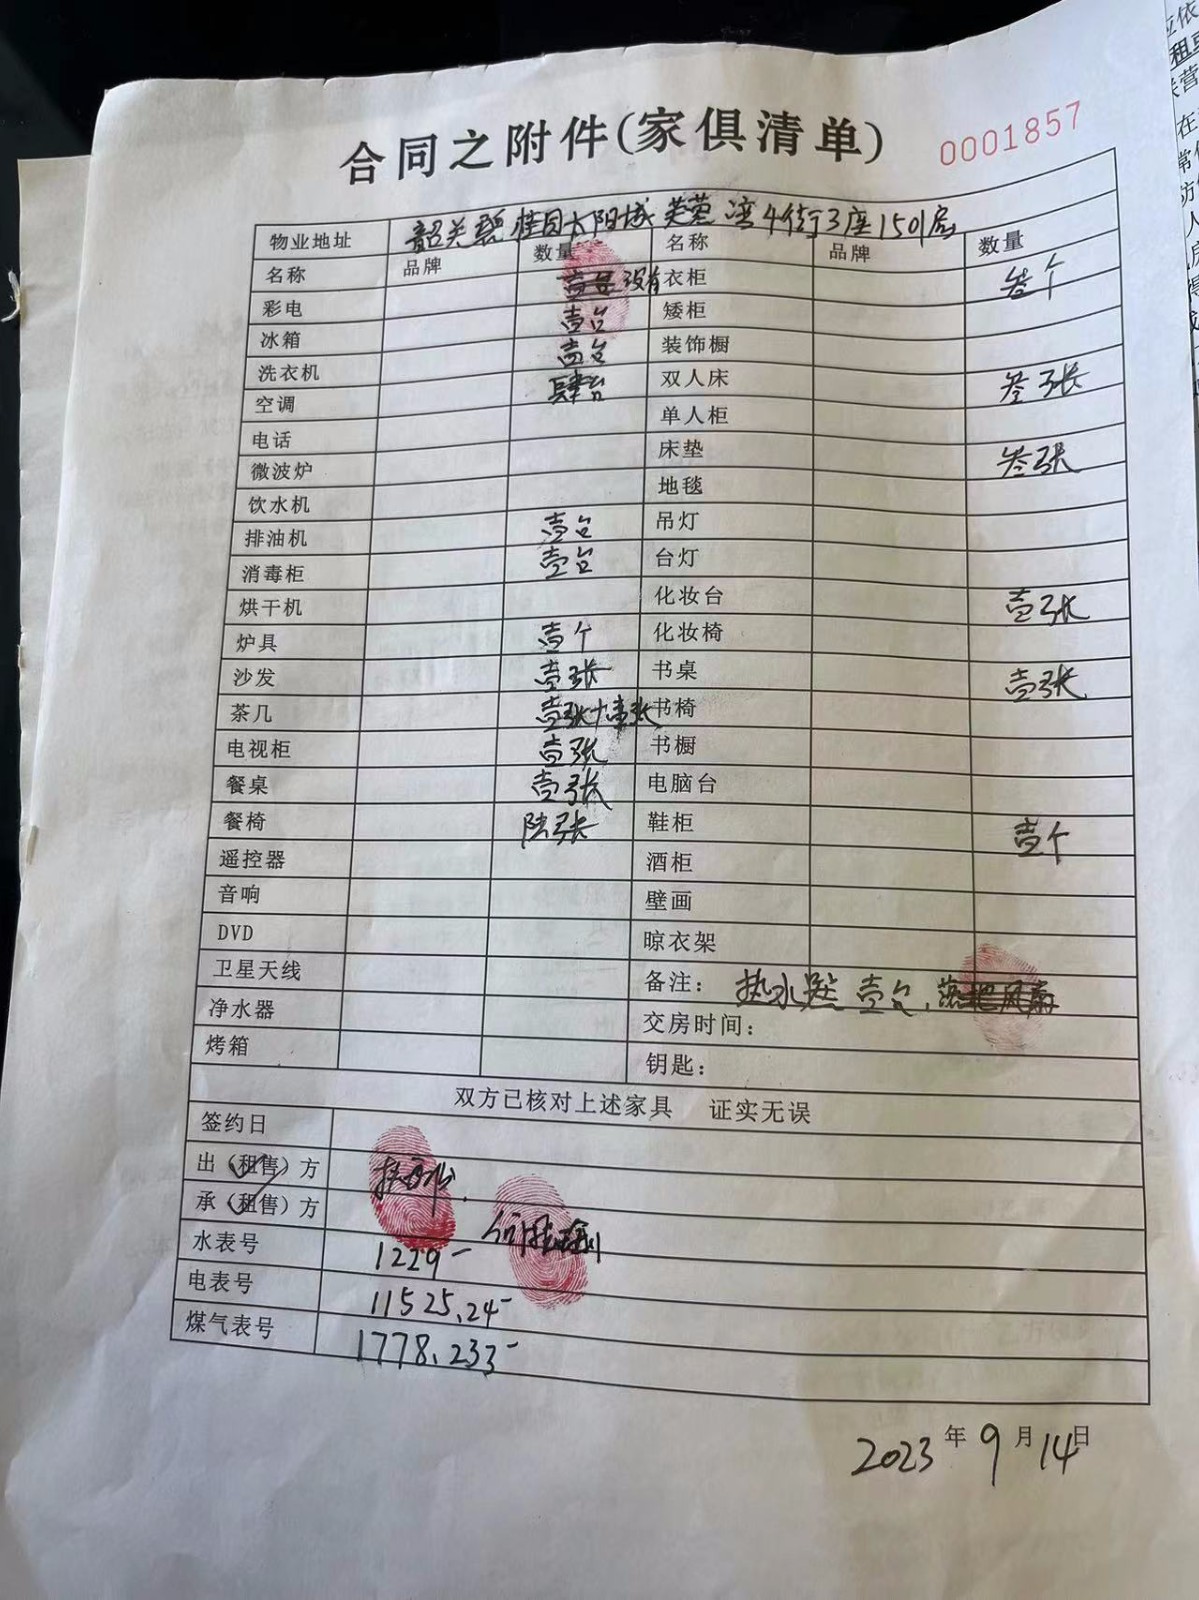 合同之附件(家俱清单) 0001857
物业地址 韶关碧桂园太阳城芙蓉湾4街3座1501房
名称 品牌 数量 名称 品牌 数量
彩电 壹台 没有 衣柜 叁个
冰箱 壹台 矮柜
洗衣机 壹台 装饰橱
空调 肆台 双人床 叁张
电话 单人柜
微波炉 床垫 叁张
饮水机 地毯
排油机 壹台 吊灯
消毒柜 壹台 台灯
烘干机 化妆台 壹张
炉具 壹个 化妆椅
沙发 壹张 书桌 壹张
茶几 壹张+壹张 书椅
电视柜 壹张 书橱
餐桌 壹张 电脑台
餐椅 陆张 鞋柜 壹个
遥控器 酒柜
音响 壁画
DVD 晾衣架
卫星天线 备注: 热水器 壹台, 落地风扇
净水器 交房时间:
烤箱 钥匙:
双方已核对上述家具 证实无误
签约日
出(租售)方
承(租售)方
水表号 1229-
电表号 11525.24-
煤气表号 1778.233-
2023年9月14日
在
常
访
人